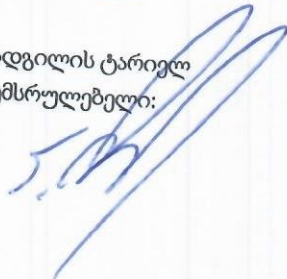 ადგილის ტარიელ
მსრულებელი: